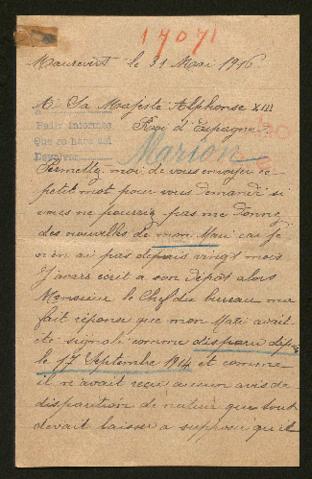 17071
Maurevert le 31 Mai 1916
A Sa Majesté Alphonse XIII
Roi d'Espagne
Pedir informes
Que se hace así
Marion
Permettez moi de vous envoyer ce
petit mot pour vous demandé si
vous ne pourriez pas me donné
des nouvelles de mon Mari car je
n'en ai pas depuis vingt mois
J'avais écrit a son dépôt alors
Monsieur le Chef du bureau me
fait réponse que mon Mari avait
été signalé comme disparu depuis
le 17 Septembre 1914 et comme
il n'avait reçu aucun avis de
disparition de nature que tout
devait laisser a supposé qu'il